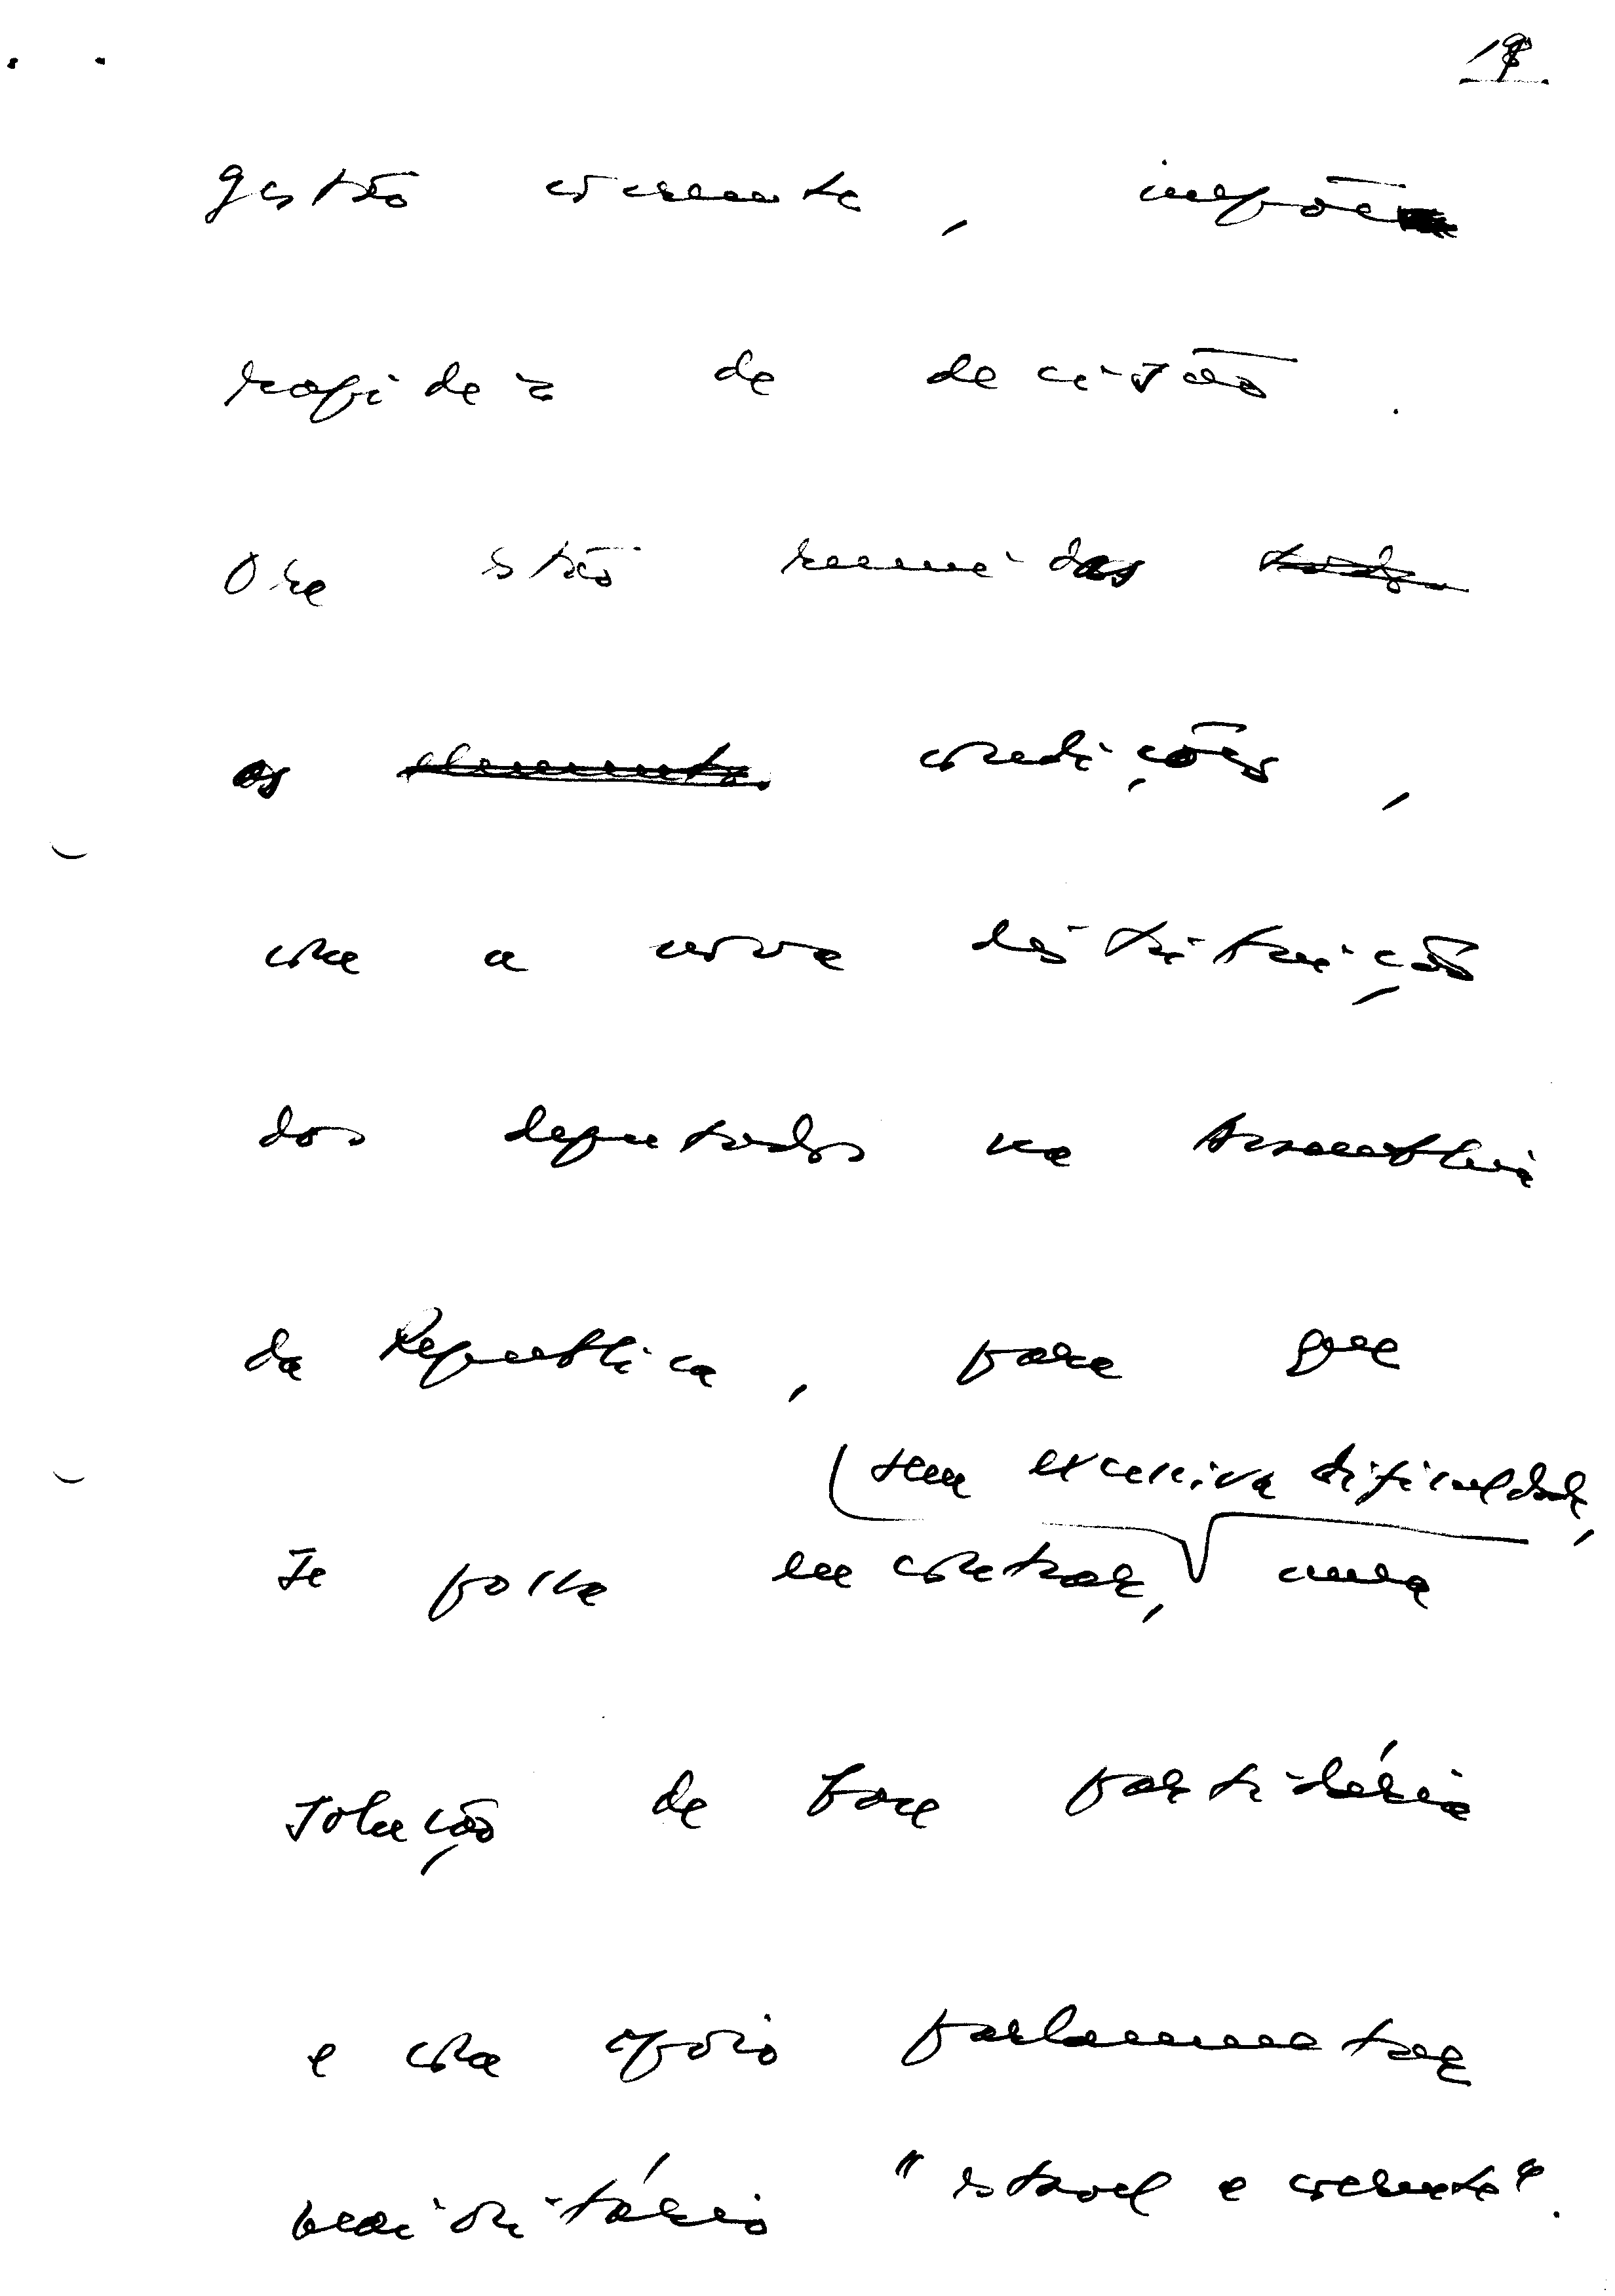 gestão corrente, impõe
rapidez de decisão.
Ora estão reunidas todos
as elementos condições,
com a nova distribuição
dos deputados na Assembleia
da República, para que
sem excessiva dificuldade,
se possa encontrar, uma
solução de base partidária
e com apoio parlamentar
maioritário "estavel e coerente".